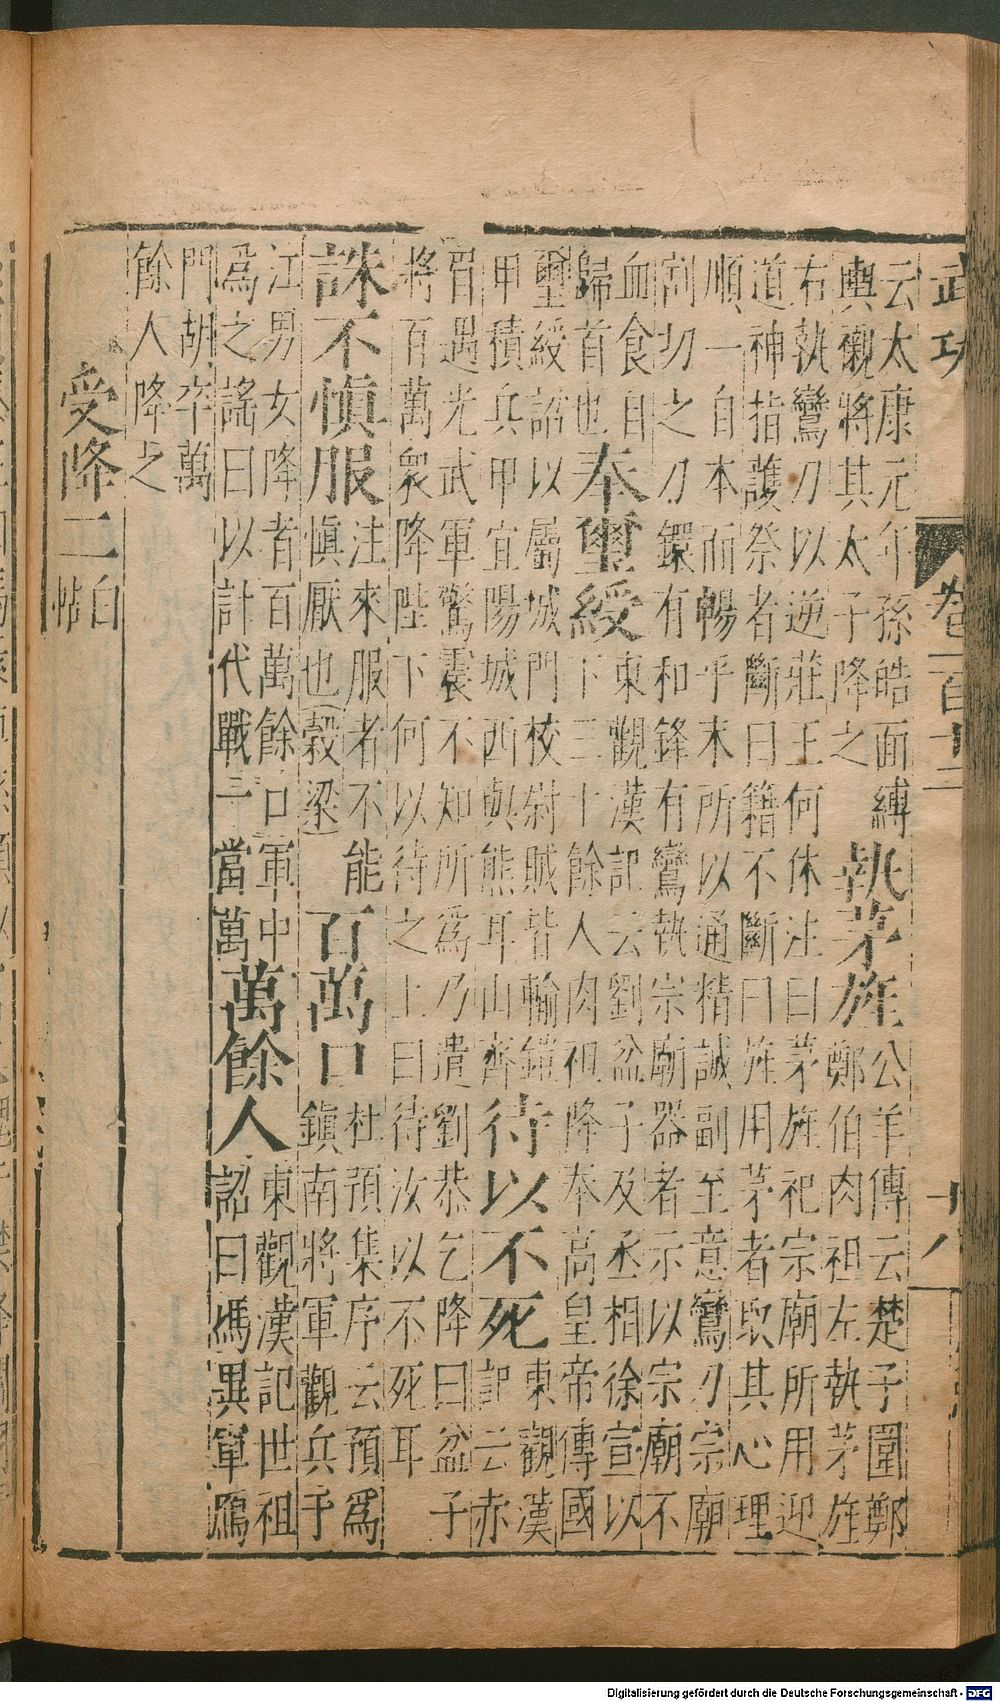 武功 卷一百十二 十八
云太康元年孫皓面縛
輿櫬將其太子降之
執茅旌
公羊傳云楚子圍鄭
鄭伯肉袒左執茅旌
右執鸞刀以逆莊王何休注曰茅旌祀宗廟所用迎
道神指護祭者斷曰籍不斷曰旌用茅者取其心理
順一自本而暢乎末所以通精誠副至意鸞刀宗廟
割切之刀鐶有和鋒有鸞執宗廟器者示以宗廟不
血食自
歸首也
奉璽綬
東觀漢記云劉盆子及丞相徐宣以
下三十餘人肉袒降奉高皇帝傳國
璽綬詔以屬城門校尉賊皆輸鎧
甲積兵甲宜陽城西與熊耳山齊
待以不死
東觀漢
記云赤
眉遇光武軍驚震不知所爲乃遣劉恭乞降曰盆子
將百萬衆降陛下何以待之上曰待汝以不死耳
誅不愼服
注來服者不能
愼厭也穀梁
百萬口
杜預集序云預爲
鎮南將軍觀兵于
江男女降者百萬餘口軍中
爲之謠曰以計代戰一當萬
萬餘人
東觀漢記世祖
詔曰馮異軍鴈
門胡卒萬
餘人降之
受降二
白
帖
Digitalisierung gefördert durch die Deutsche Forschungsgemeinschaft - DFG